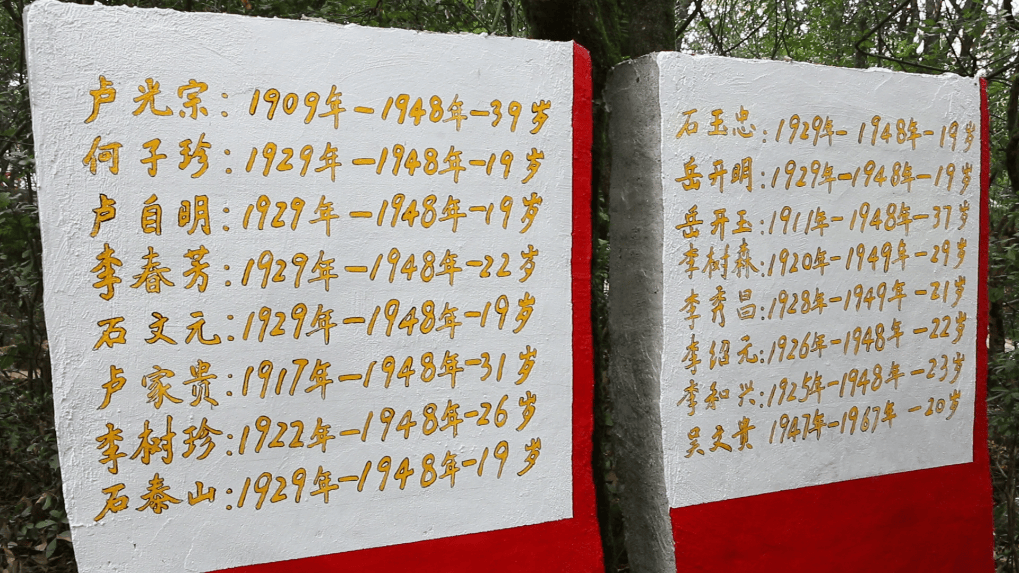 卢光宗：1909年-1948年-39岁
何子珍：1929年-1948年-19岁
卢自明：1929年-1948年-19岁
李春芳：1929年-1948年-22岁
石文元：1929年-1948年-19岁
卢家贵：1917年-1948年-31岁
李树珍：1922年-1948年-26岁
石泰山：1929年-1948年-19岁
石玉忠：1929年-1948年-19岁
岳开明：1929年-1948年-19岁
岳开玉：1911年-1948年-37岁
李树森：1920年-1949年-29岁
李秀昌：1928年-1949年-21岁
李绍元：1926年-1948年-22岁
李和兴：1925年-1948年-23岁
吴文贵 1947年-1967年-20岁